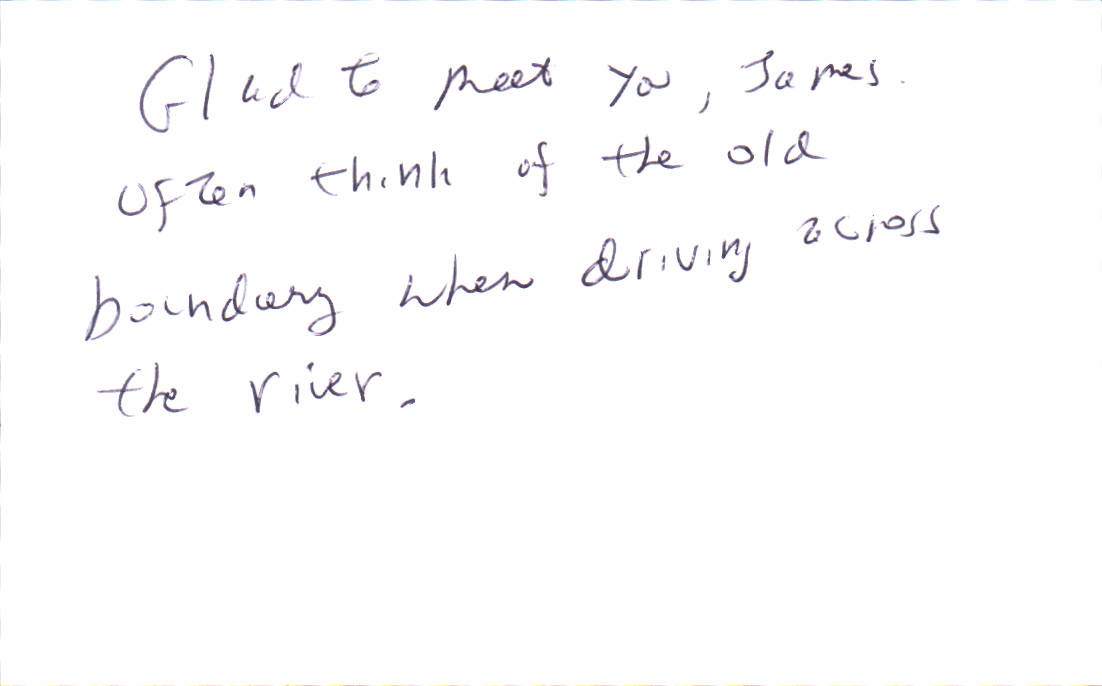 Glad to meet you, James.
Often think of the old
boundary when driving across
the river.